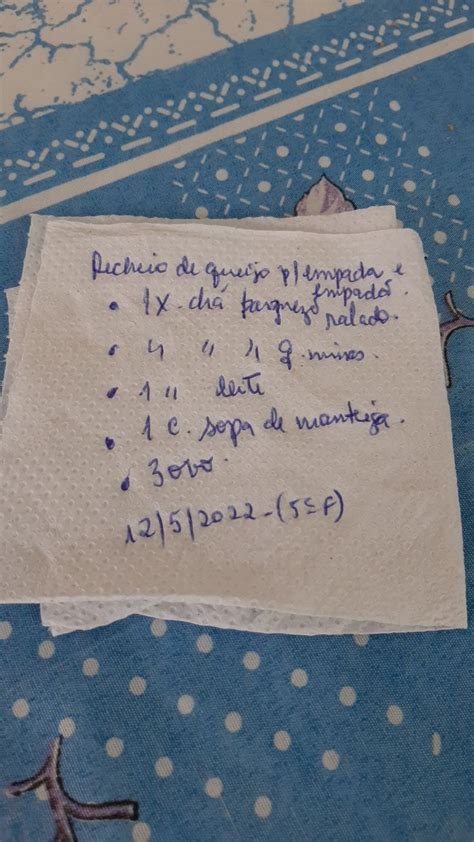 Recheio de queijo p/ empada e
empadão.
• 1 X. chá parmezo ralado.
• " " " q. minas.
• 1 " leite
• 1 c. sopa de manteiga.
• 3 ovo.
12/5/2022-(5ªF)